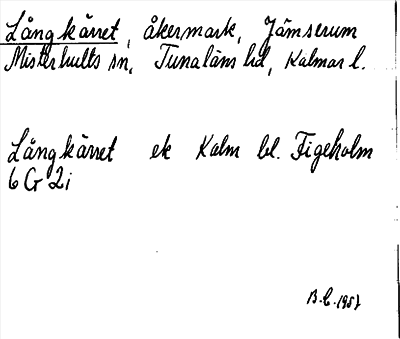 Långkärret, åkermark, Jämserum
Misterhults sn, Tunaläns hd, Kalmar l.
Långkärret ek Kalm bl. Figeholm
6 G 2i
B.L. 1957